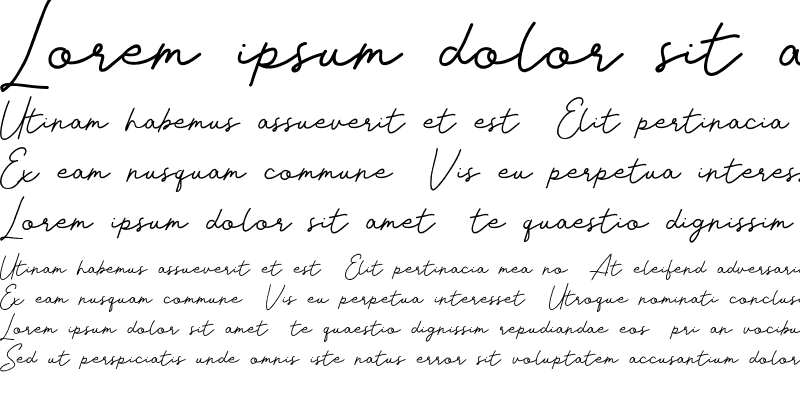 Lorem ipsum dolor sit a
Utinam habemus assueverit et est Elit pertinacia
Ex eam nusquam commune Vis eu perpetua interess
Lorem ipsum dolor sit amet te quaestio dignissim
Utinam habemus assueverit et est Elit pertinacia mea no At eleifend adversari
Ex eam nusquam commune Vis eu perpetua interesset Utroque nominati conclus
Lorem ipsum dolor sit amet te quaestio dignissim repudiandae eos pri an vocibu
Sed ut perspiciatis unde omnis iste natus error sit voluptatem accusantium dolor